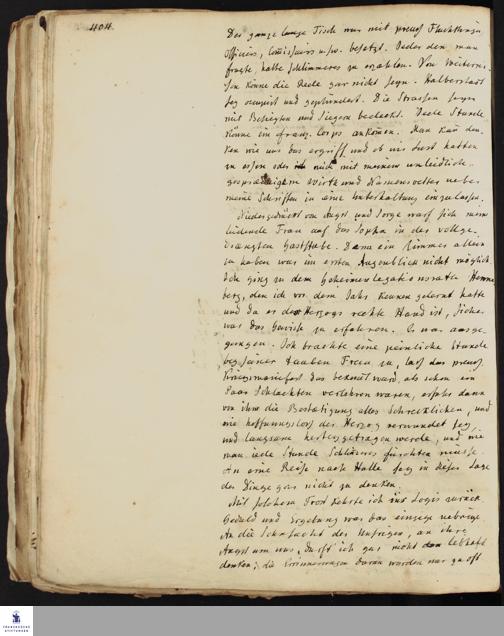 404.
Der ganze lange Tisch war mit preuß. Flüchtlingen
Officiers, Comissairs u.s.w. besetzt. Jeder den man
fragte, hatte Schlimmeres zu erzählen. Von Weiterrei-
sen könne die Rede gar nicht seyn. Halberstadt
sey occupirt und geplündert. Die Strassen seyen
mit Besiegten und Siegern bedeckt. Jede Stunde
könne ein franz. Corps ankomen. Man kan den-
ken wie uns das ergriff und ob wir Lust hatten
zu essen oder ich mich mit meinem unleidlich-
gesprächigem Wirte und Namensvetter ueber
meine Schriften in eine Unterhaltung einzulassen.
Niedergedrückt von Angst und Sorge warf sich meine
leidende Frau auf das Sopha in der vollge-
drängten Gaststube. Denn ein Zimmer allein
zu haben war im ersten Augenblick nicht möglich.
Ich ging zu dem Geheimenlegationsrath Henne
berg, den ich vor dem Jahr kennen gelernt hatte
und da er des Herzogs rechte Hand ist, sicher
war das Gewisse zu erfahren. Er war ausge-
gangen. Ich brachte eine peinliche Stunde
bey seiner tauben Frau zu, las das preuß.
Kriegsmanifest das bekant ward, als schon ein
Paar Schlachten verlohren waren, erfuhr dann
von ihm die Bestätigung alles Schrecklichen, und
wie hoffnungslos der Herzog verwundet sey,
und langsam hierhergetragen werde, und wie
man jede Stunde Schlimeres fürchten müsse.
An eine Reise nach Halle sey in dieser Lage
der Dinge gar nicht zu denken.
Mit solchem Trost kehrte ich ins Logis zurück
Geduld und Ergebung war das einzige uebrige
An die Sehnsucht der Unsrigen, an ihre
Angst um uns, durft ich gar nicht lebhaft
denken; die Erinnerungen daran wurden nur zu oft